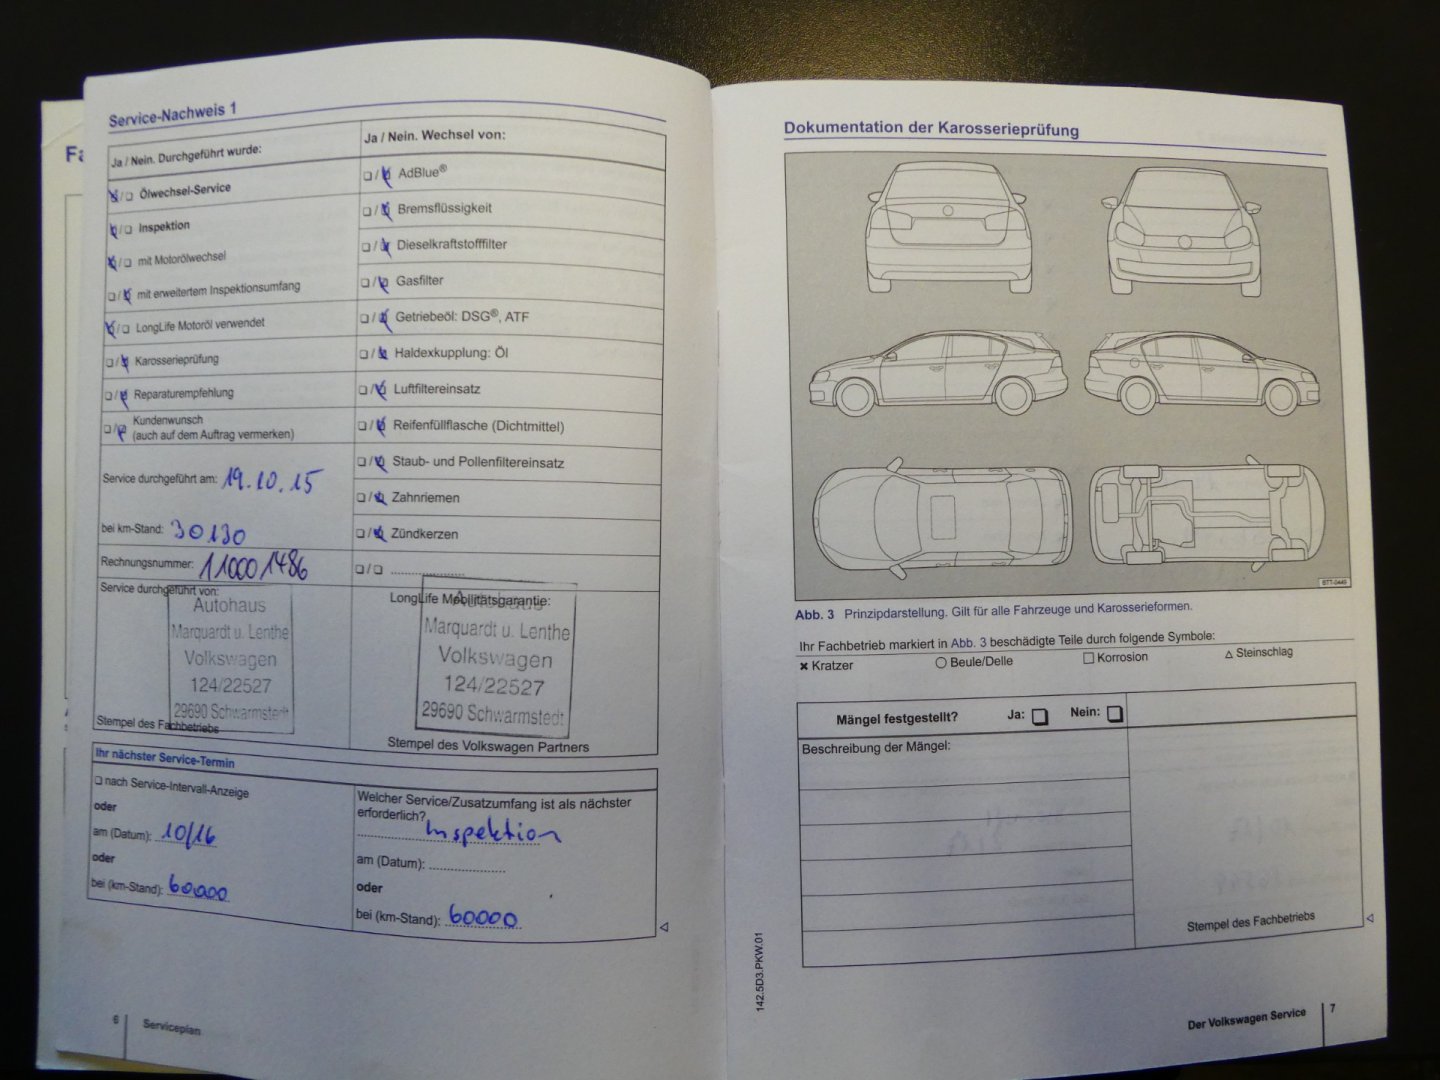 Fa
Service-Nachweis 1
Ja / Nein. Durchgeführt wurde:
Ölwechsel-Service
Inspektion
mit Motorölwechsel
mit erweitertem Inspektionsumfang
LongLife Motoröl verwendet
Karosserieprüfung
Reparaturempfehlung
Kundenwunsch
(auch auf dem Auftrag vermerken)
Service durchgeführt am: 19.10.15
bei km-Stand: 30130
Rechnungsnummer: 110001486
Service durchgeführt von:
Autohaus
Marquardt u. Lenthe
Volkswagen
124/22527
29690 Schwarmstedt
Stempel des Fachbetriebs
Ja / Nein. Wechsel von:
AdBlue®
Bremsflüssigkeit
Dieselkraftstofffilter
Gasfilter
Getriebeöl: DSG®, ATF
Haldexkupplung: Öl
Luftfiltereinsatz
Reifenfüllflasche (Dichtmittel)
Staub- und Pollenfiltereinsatz
Zahnriemen
Zündkerzen
LongLife Mobilitätsgarantie:
Autohaus
Marquardt u. Lenthe
Volkswagen
124/22527
29690 Schwarmstedt
Stempel des Volkswagen Partners
Ihr nächster Service-Termin
nach Service-Intervall-Anzeige
oder
am (Datum): 10/16
oder
bei (km-Stand): 60000
Welcher Service/Zusatzumfang ist als nächster
erforderlich? Inspektion
am (Datum):
oder
bei (km-Stand): 60000
6 Serviceplan
Dokumentation der Karosserieprüfung
BTT-0449
Abb. 3 Prinzipdarstellung. Gilt für alle Fahrzeuge und Karosserieformen.
Ihr Fachbetrieb markiert in Abb. 3 beschädigte Teile durch folgende Symbole:
Kratzer Beule/Delle Korrosion Steinschlag
Mängel festgestellt? Ja: Nein:
Beschreibung der Mängel:
Stempel des Fachbetriebs
142.5D3.PKW.01
Der Volkswagen Service 7